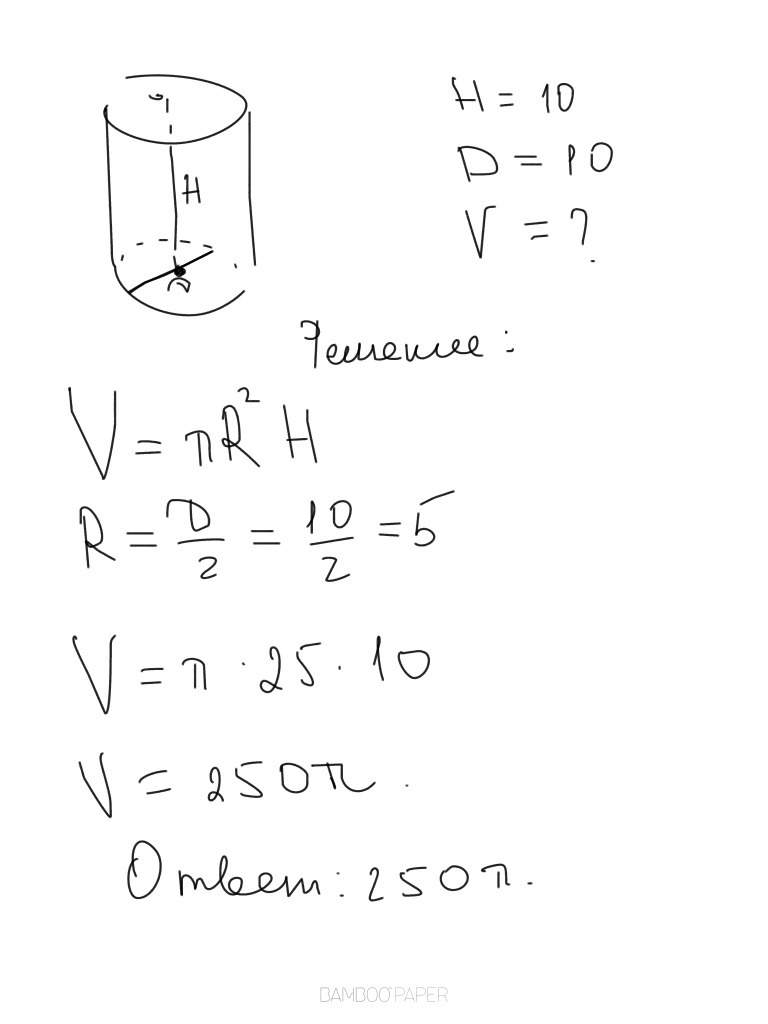 H = 10
D = 10
V = ?
H
Решение:
V = πR² H
R = D/2 = 10/2 = 5
V = π · 25 · 10
V = 250π.
Ответ: 250π.
BAMBOO PAPER